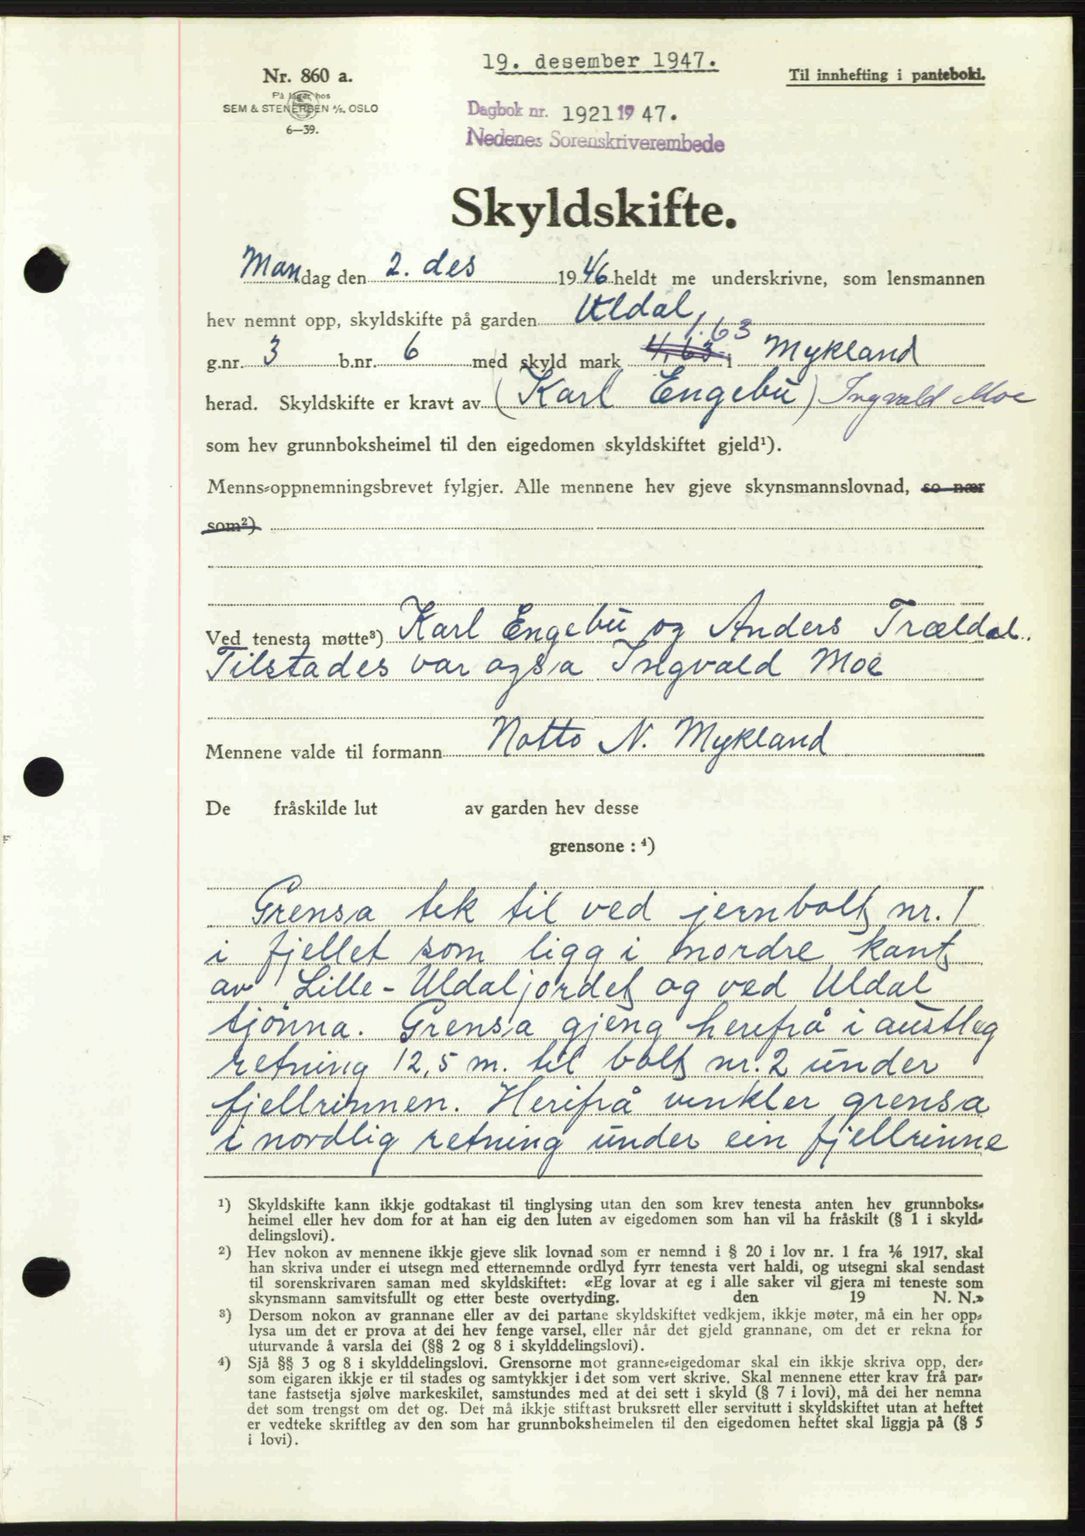 19. desember 1947.
Nr. 860 a.
Til innhefting i pantebok.
På lager hos
SEM & STENERSEN A/S. OSLO
6—39.
Dagbok nr. 1921 1947.
Nedenes Sorenskriverembede
Skyldskifte.
Mandag den 2. des 1946 heldt me underskrivne, som lensmannen
hev nemnt opp, skyldskifte på garden Uldal,
1.63
g.nr. 3 b.nr. 6 med skyld mark 4,63 i Mykland
herad. Skyldskifte er kravt av (Karl Engebu) Ingvald Moe
som hev grunnboksheimel til den eigedomen skyldskiftet gjeld¹).
Menns-oppnemningsbrevet fylgjer. Alle mennene hev gjeve skynsmannslovnad, so nær
som²)
Ved tenesta møtte³) Karl Engebu og Anders Trældal.
Tilstades var også Ingvald Moe
Mennene valde til formann Notto N. Mykland
De fråskilde lut av garden hev desse
grensone : ⁴)
Grensa tek til ved jernbolt nr. 1
i fjellet som ligg i nordre kant
av Lille-Uldaljordet og ved Uldal
tjønna. Grensa gjeng herifrå i austleg
retning 12,5 m. til bolt nr. 2 under
fjellrinnen. Herifrå vinkler grensa
i nordlig retning under ein fjellrinne
¹) Skyldskifte kann ikkje godtakast til tinglysing utan den som krev tenesta anten hev grunnboks-
heimel eller hev dom for at han eig den luten av eigedomen som han vil ha fråskilt (§ 1 i skyld-
delingslovi).
²) Hev nokon av mennene ikkje gjeve slik lovnad som er nemnd i § 20 i lov nr. 1 fra 1/6 1917, skal
han skriva under ei utsegn med etternemnde ordlyd fyrr tenesta vert haldi, og utsegni skal sendast
til sorenskrivaren saman med skyldskiftet: «Eg lovar at eg i alle saker vil gjera mi teneste som
skynsmann samvitsfullt og etter beste overtyding. den 19 N. N.»
³) Dersom nokon av grannane eller av dei partane skyldskiftet vedkjem, ikkje møter, må ein her opp-
lysa um det er prova at dei hev fenge varsel, eller når det gjeld grannane, om det er rekna for
uturvande å varsla dei (§§ 2 og 8 i skylddelingslovi).
⁴) Sjå §§ 3 og 8 i skylddelingslovi. Grensorne mot granne-eigedomar skal ein ikkje skriva opp, der-
som eigaren ikkje er til stades og samtykkjer i det som vert skrive. Skal mennene etter krav frå par-
tane fastsetja sjølve markeskilet, samstundes med at dei sett i skyld (§ 7 i lovi), må dei her nemna
det som trengst om det og. Det må ikkje stiftast bruksrett eller servitutt i skyldskiftet utan at heftet
er vedteke skriftleg av den som har grunnboksheimelen til den eigedomen heftet skal liggja på (§ 5
i lovi).